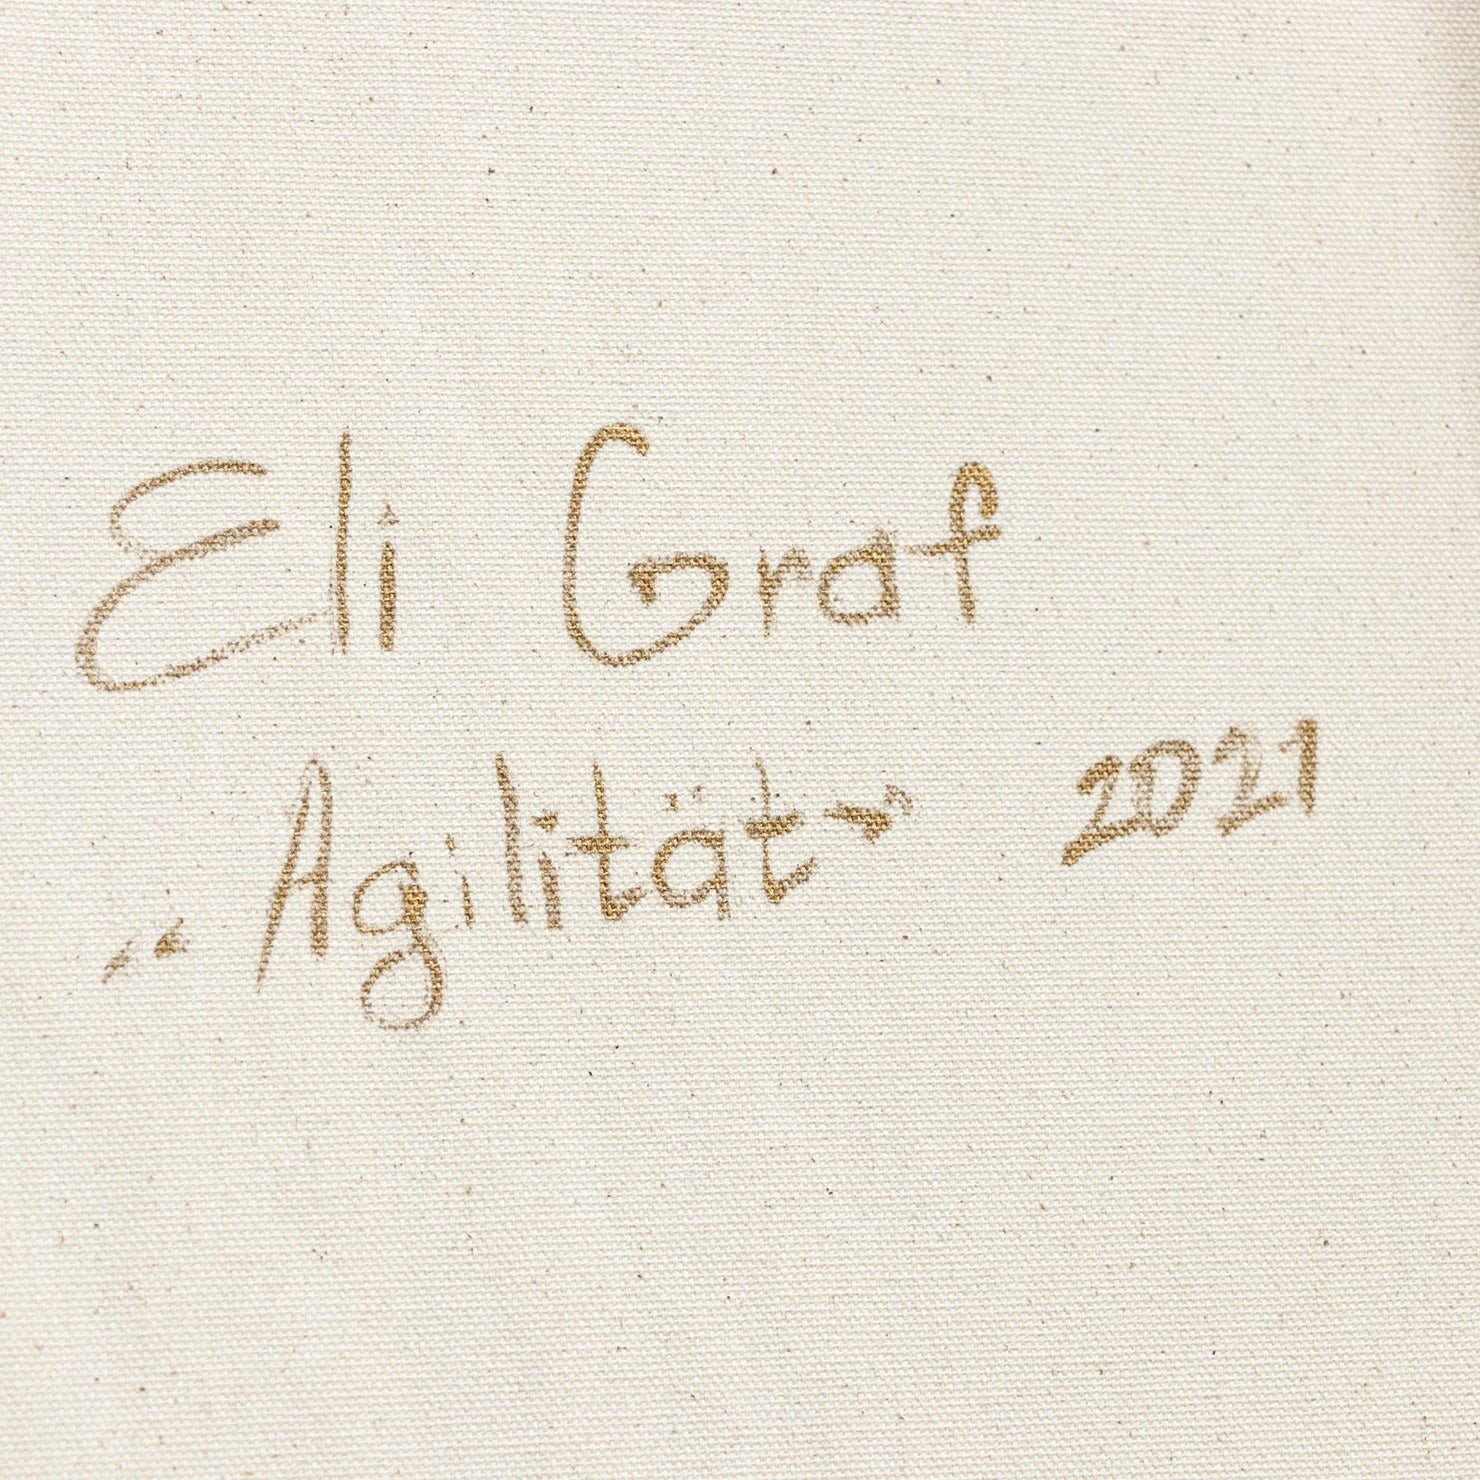 Eli Graf
"Agilität" 2021